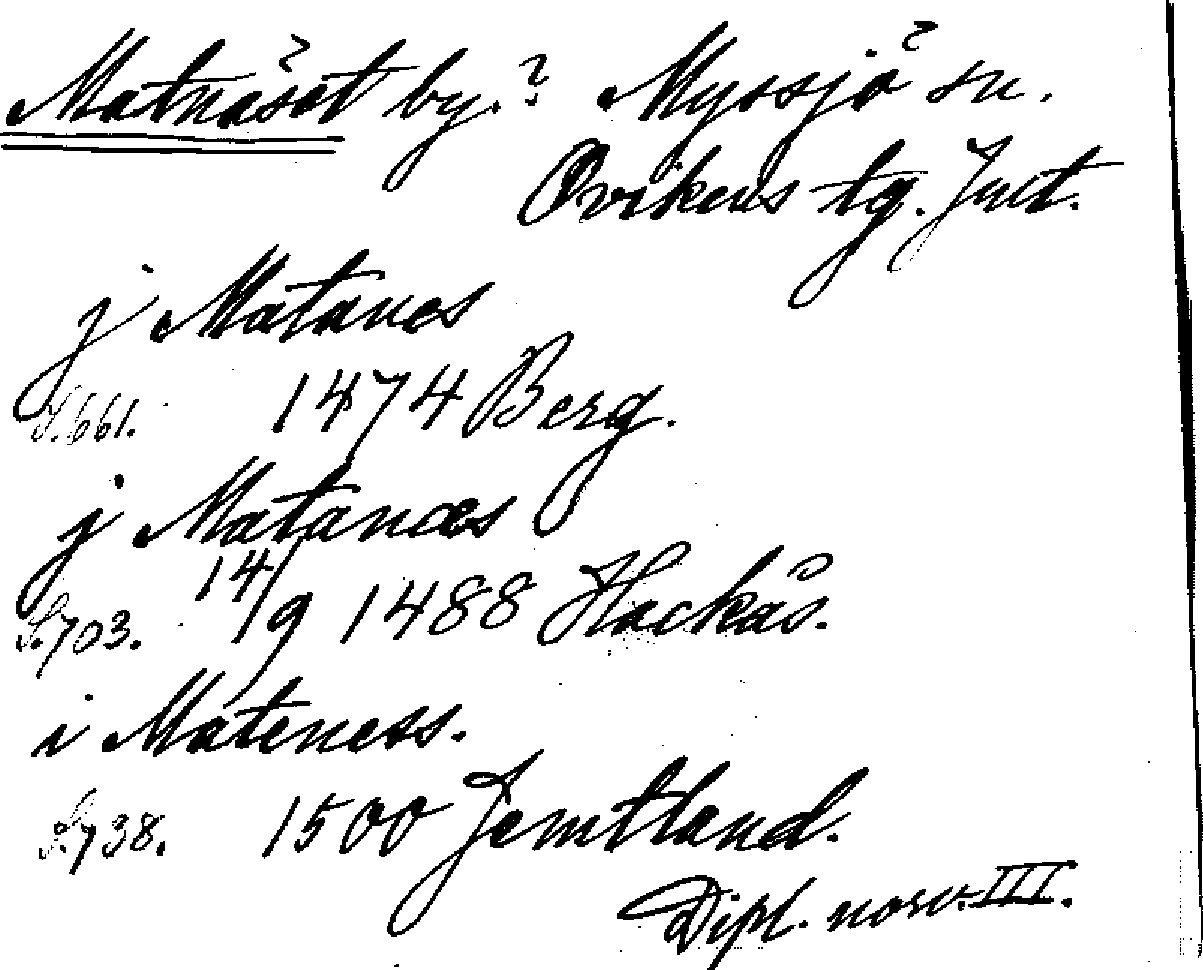 Matnäset by.? Myssjö sn.
Ovikens tg. Jmt.
j Matanes
S.661. 1474 Berg.
j Matanæs
S.703. 14/9 1488 Hackås.
i Mateness.
S.738. 1500 Jemtland.
Dipl. norv. III.